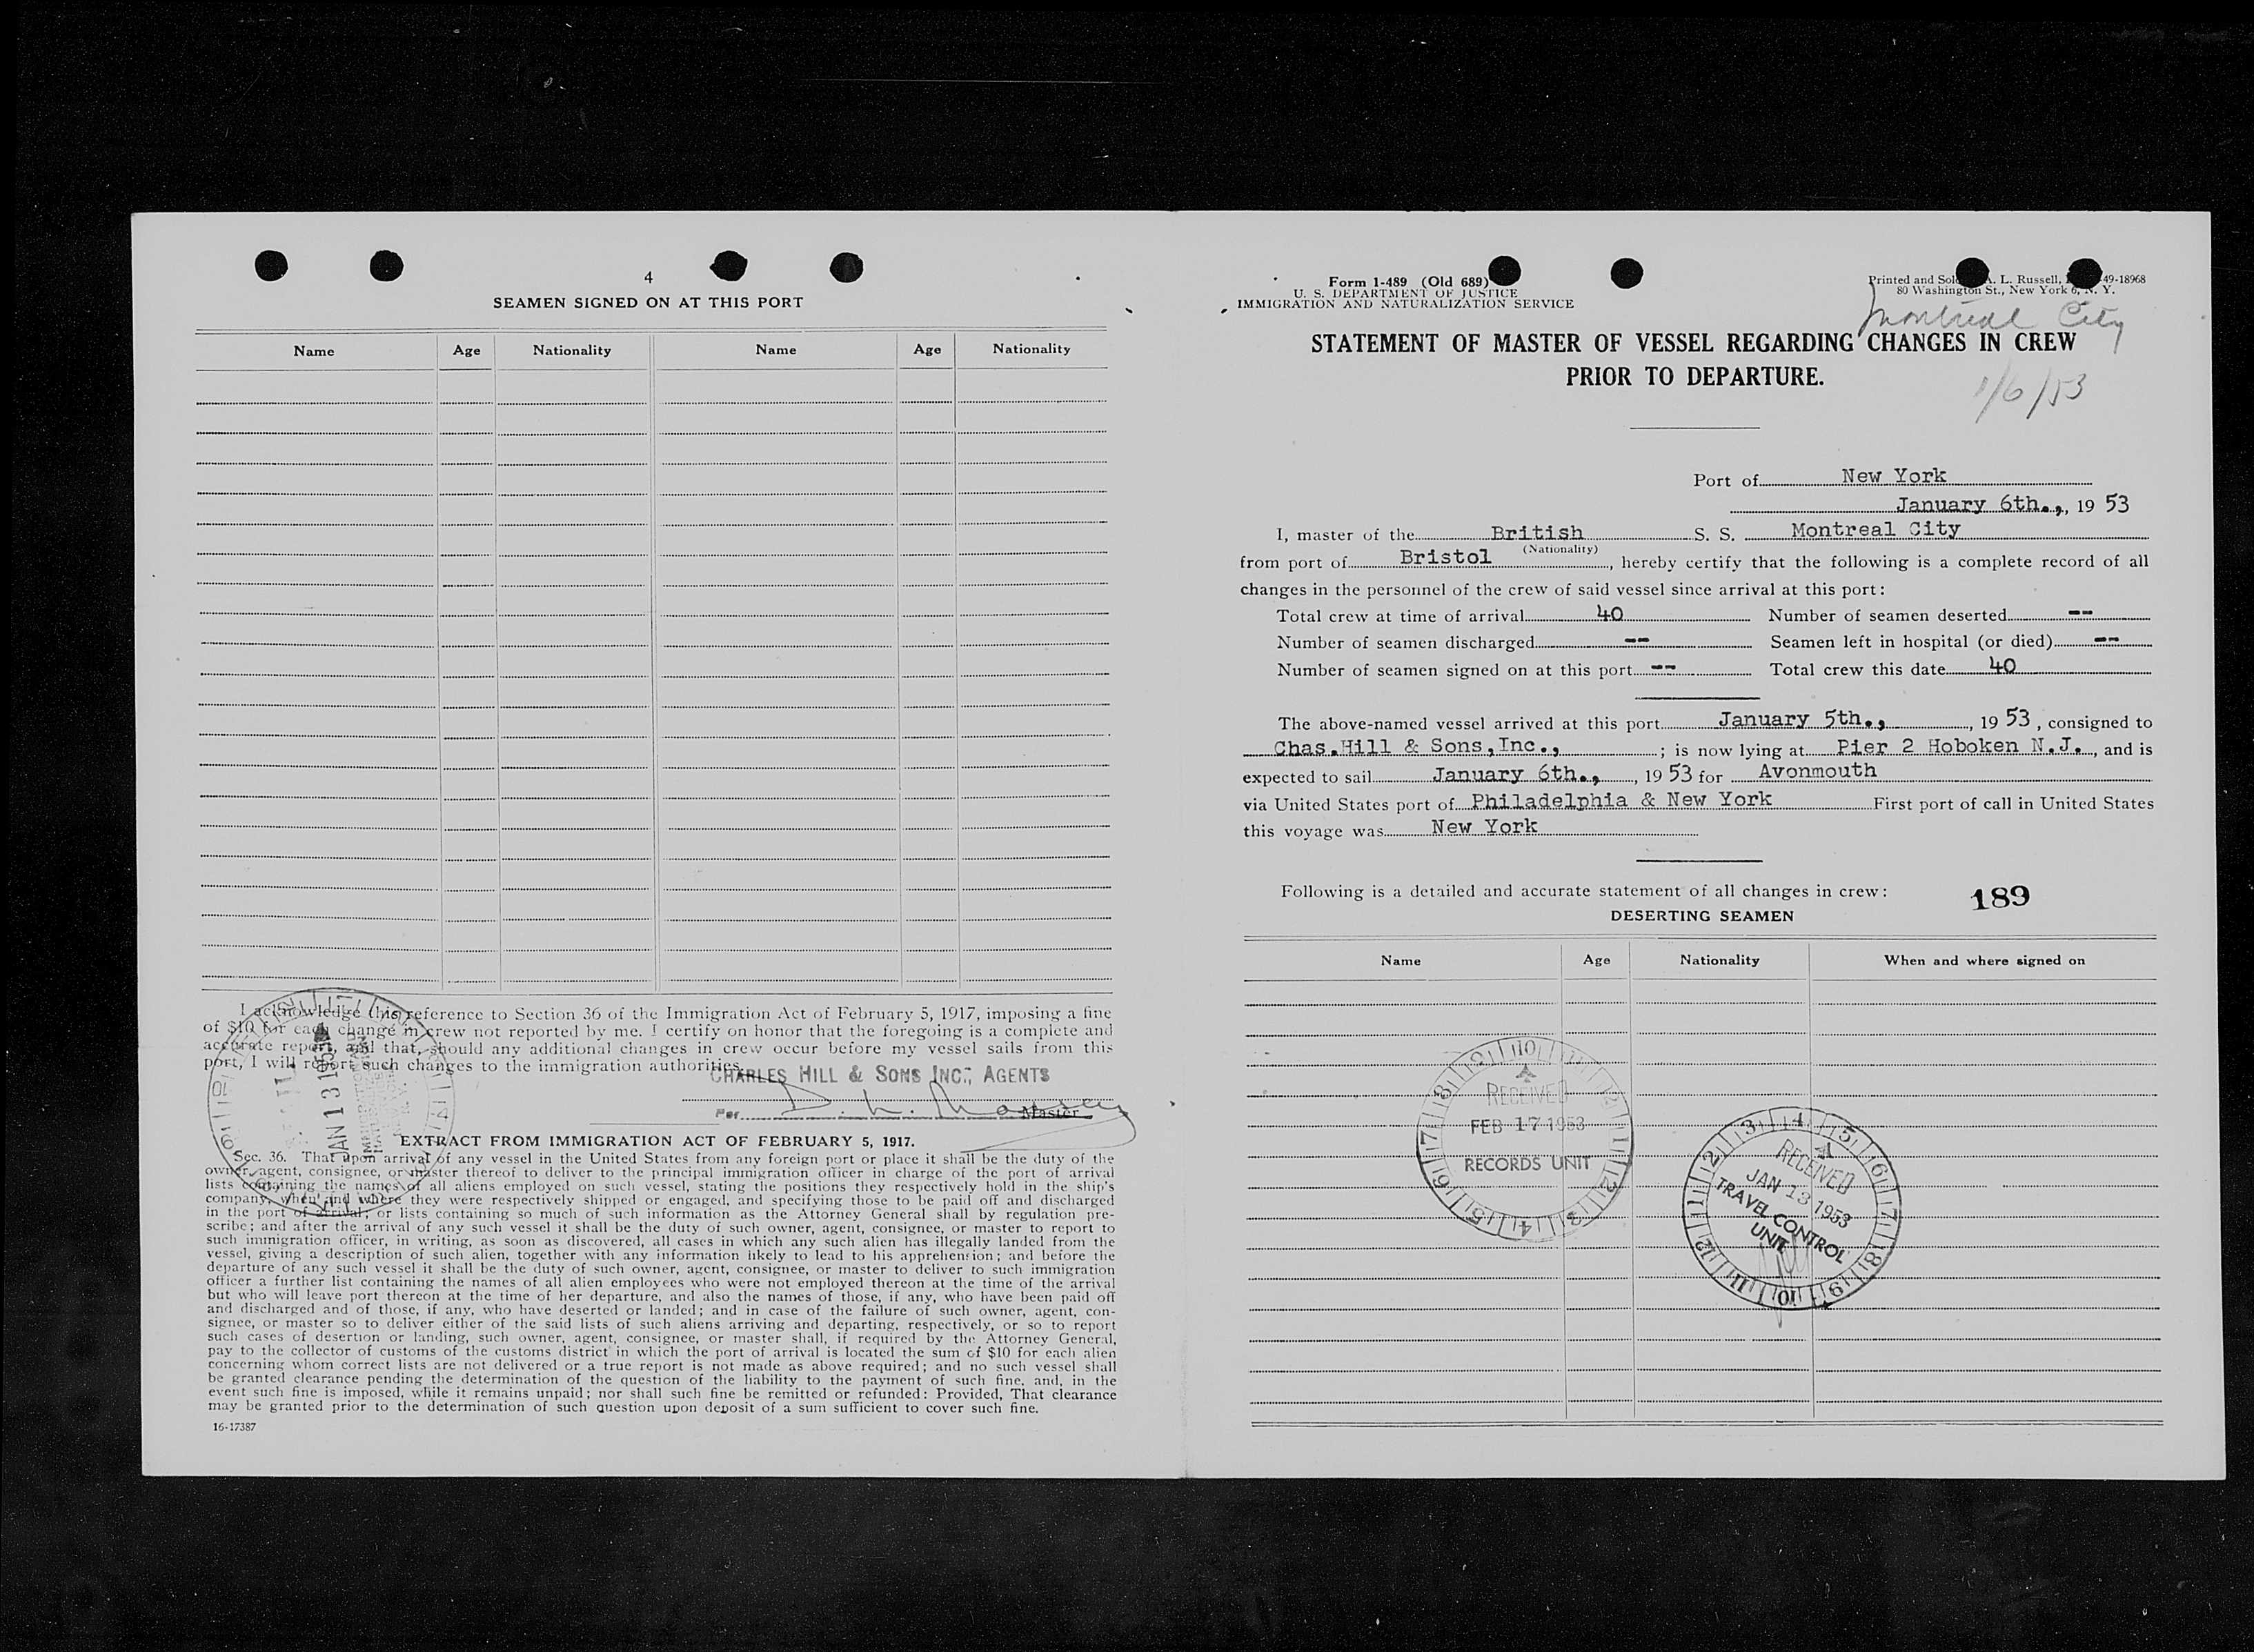 4
SEAMEN SIGNED ON AT THIS PORT
Name Age Nationality Name Age Nationality
I acknowledge this reference to Section 36 of the Immigration Act of February 5, 1917, imposing a fine
of $10 for each change in crew not reported by me. I certify on honor that the foregoing is a complete and
accurate report, and that, should any additional changes in crew occur before my vessel sails from this
port, I will report such changes to the immigration authorities.
CHARLES HILL & SONS INC., AGENTS
Per D. Master
JAN 13 1953
EXTRACT FROM IMMIGRATION ACT OF FEBRUARY 5, 1917.
Sec. 36. That upon arrival of any vessel in the United States from any foreign port or place it shall be the duty of the
owner, agent, consignee, or master thereof to deliver to the principal immigration officer in charge of the port of arrival
lists containing the names of all aliens employed on such vessel, stating the positions they respectively hold in the ship's
company, when and where they were respectively shipped or engaged, and specifying those to be paid off and discharged
in the port of arrival; or lists containing so much of such information as the Attorney General shall by regulation pre-
scribe; and after the arrival of any such vessel it shall be the duty of such owner, agent, consignee, or master to report to
such immigration officer, in writing, as soon as discovered, all cases in which any such alien has illegally landed from the
vessel, giving a description of such alien, together with any information likely to lead to his apprehension; and before the
departure of any such vessel it shall be the duty of such owner, agent, consignee, or master to deliver to such immigration
officer a further list containing the names of all alien employees who were not employed thereon at the time of the arrival
but who will leave port thereon at the time of her departure, and also the names of those, if any, who have been paid off
and discharged and of those, if any, who have deserted or landed; and in case of the failure of such owner, agent, con-
signee, or master so to deliver either of the said lists of such aliens arriving and departing, respectively, or so to report
such cases of desertion or landing, such owner, agent, consignee, or master shall, if required by the Attorney General,
pay to the collector of customs of the customs district in which the port of arrival is located the sum of $10 for each alien
concerning whom correct lists are not delivered or a true report is not made as above required; and no such vessel shall
be granted clearance pending the determination of the question of the liability to the payment of such fine, and, in the
event such fine is imposed, while it remains unpaid; nor shall such fine be remitted or refunded: Provided, That clearance
may be granted prior to the determination of such question upon deposit of a sum sufficient to cover such fine.
16-17387
Form 1-489 (Old 689)
U. S. DEPARTMENT OF JUSTICE
IMMIGRATION AND NATURALIZATION SERVICE
Printed and Sold A. L. Russell, 49-18968
80 Washington St., New York 6, N. Y.
Montreal City
STATEMENT OF MASTER OF VESSEL REGARDING CHANGES IN CREW
PRIOR TO DEPARTURE.
1/6/53
Port of New York
January 6th., 19 53
I, master of the British S. S. Montreal City
(Nationality)
from port of Bristol, hereby certify that the following is a complete record of all
changes in the personnel of the crew of said vessel since arrival at this port:
Total crew at time of arrival 40 Number of seamen deserted --
Number of seamen discharged -- Seamen left in hospital (or died) --
Number of seamen signed on at this port -- Total crew this date 40
The above-named vessel arrived at this port January 5th., 19 53, consigned to
Chas.Hill & Sons,Inc., ; is now lying at Pier 2 Hoboken N.J., and is
expected to sail January 6th., , 19 53 for Avonmouth
via United States port of Philadelphia & New York First port of call in United States
this voyage was New York
Following is a detailed and accurate statement of all changes in crew:
189
DESERTING SEAMEN
Name Age Nationality When and where signed on
RECEIVED
FEB 17 1953
RECORDS UNIT
RECEIVED
JAN 13 1953
TRAVEL CONTROL
UNIT